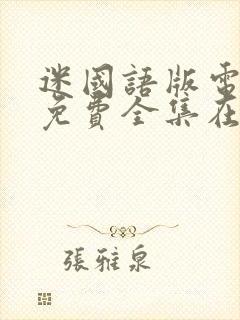 迷國語版電
免費全集在
張雅泉